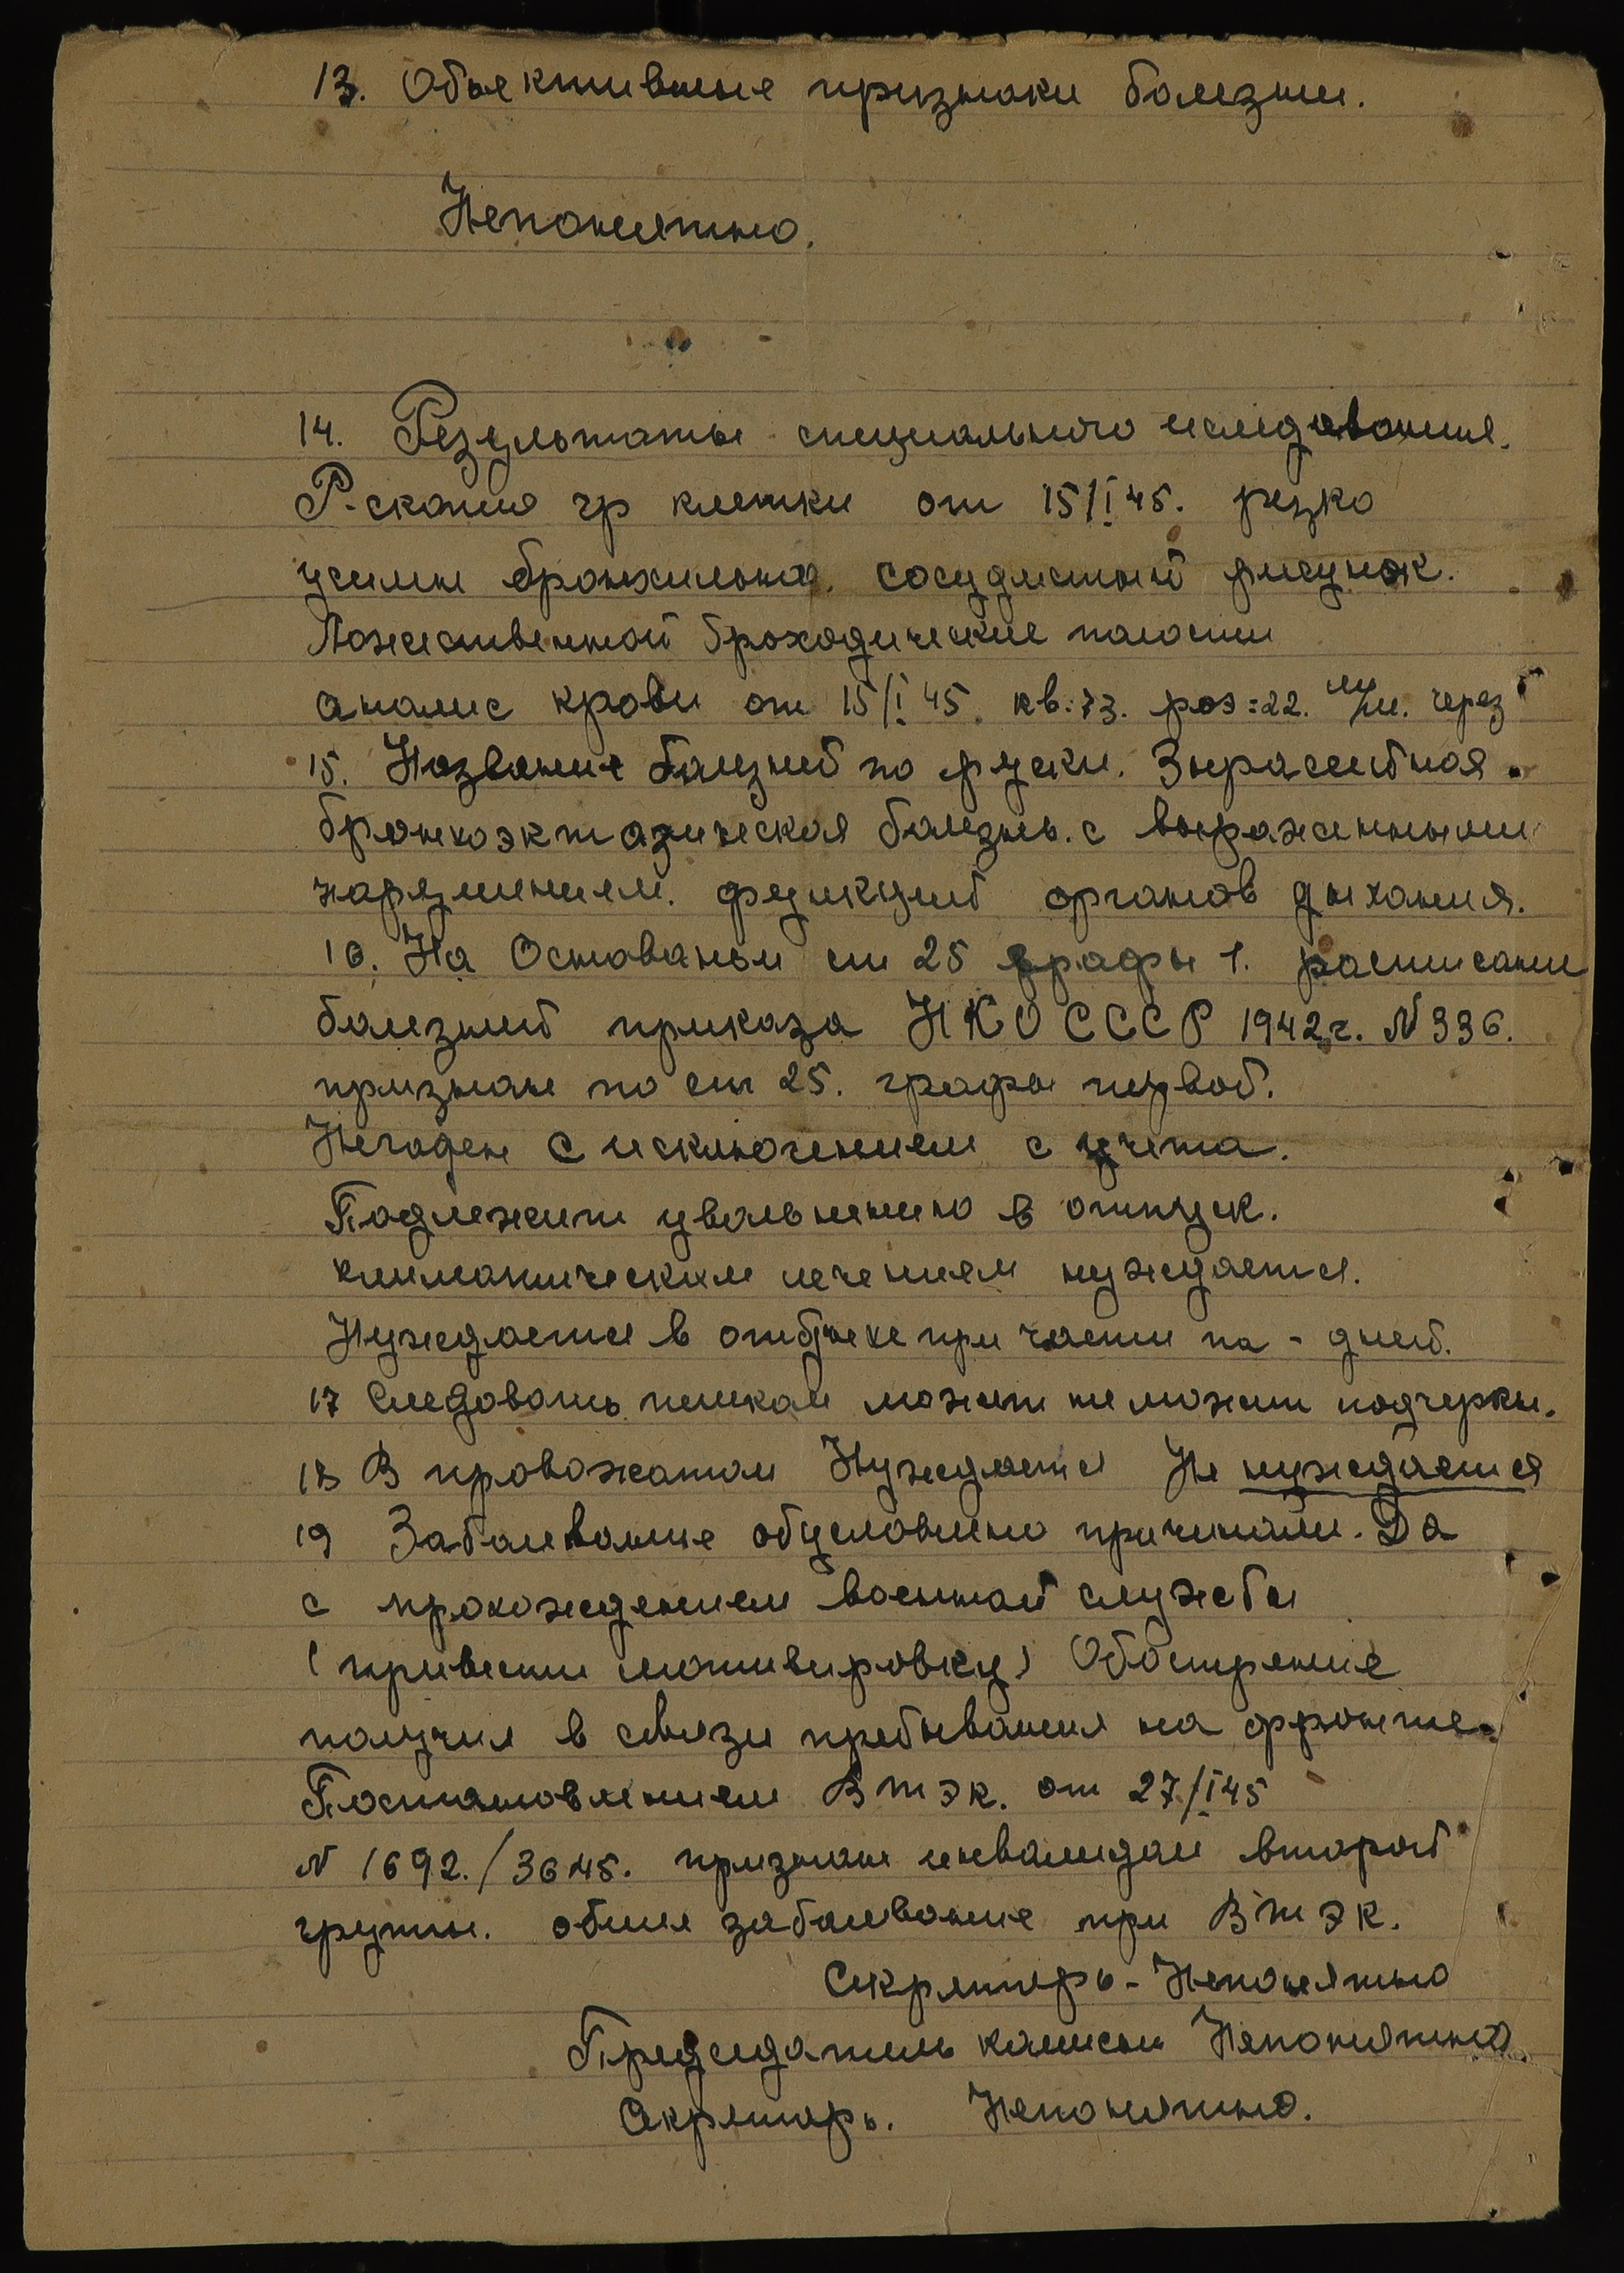 13. Объективные признаки болезни.
Непонятно.
14. Результаты специального иследования.
Р-скопия гр клетки от 15/I 45. резко
усилен бронхильно. сосудистый рисунок.
Множественной броходические полости
анализ крови от 15/I 45. кв:73. роэ=22. через
15. Название болезней по руски.
бронхоэктазическая болезнь. с выраженными
нарушением. функций органов дыхания.
16. На Основаньи ст 25 графы 1. расписани
болезней приказа НКО СССР 1942г. N 336.
признан по ст 25. графы первой.
Негоден с исключением с учета.
Подлежит увольнению в отпуск.
климатическим лечением нуждается.
Нуждается в отдыхе при части на - дней.
17 Следовать пешком может не может подчеркн.
18 В провожатом Нуждается Не нуждается
19 Заболевание обусловлено причинами. Да
с прохождением военной службы
(привести мотивировку) Обострение
получил в связи пребывания на фронте.
Постановлением ВТЭК. от 27/I 45
N 1692./3645. признан инвалидам второй
группы. общие заболевание при ВТЭК.
Секретарь - Непонятно
Председатель комисии Непонятно
Секретарь. Непонятно.